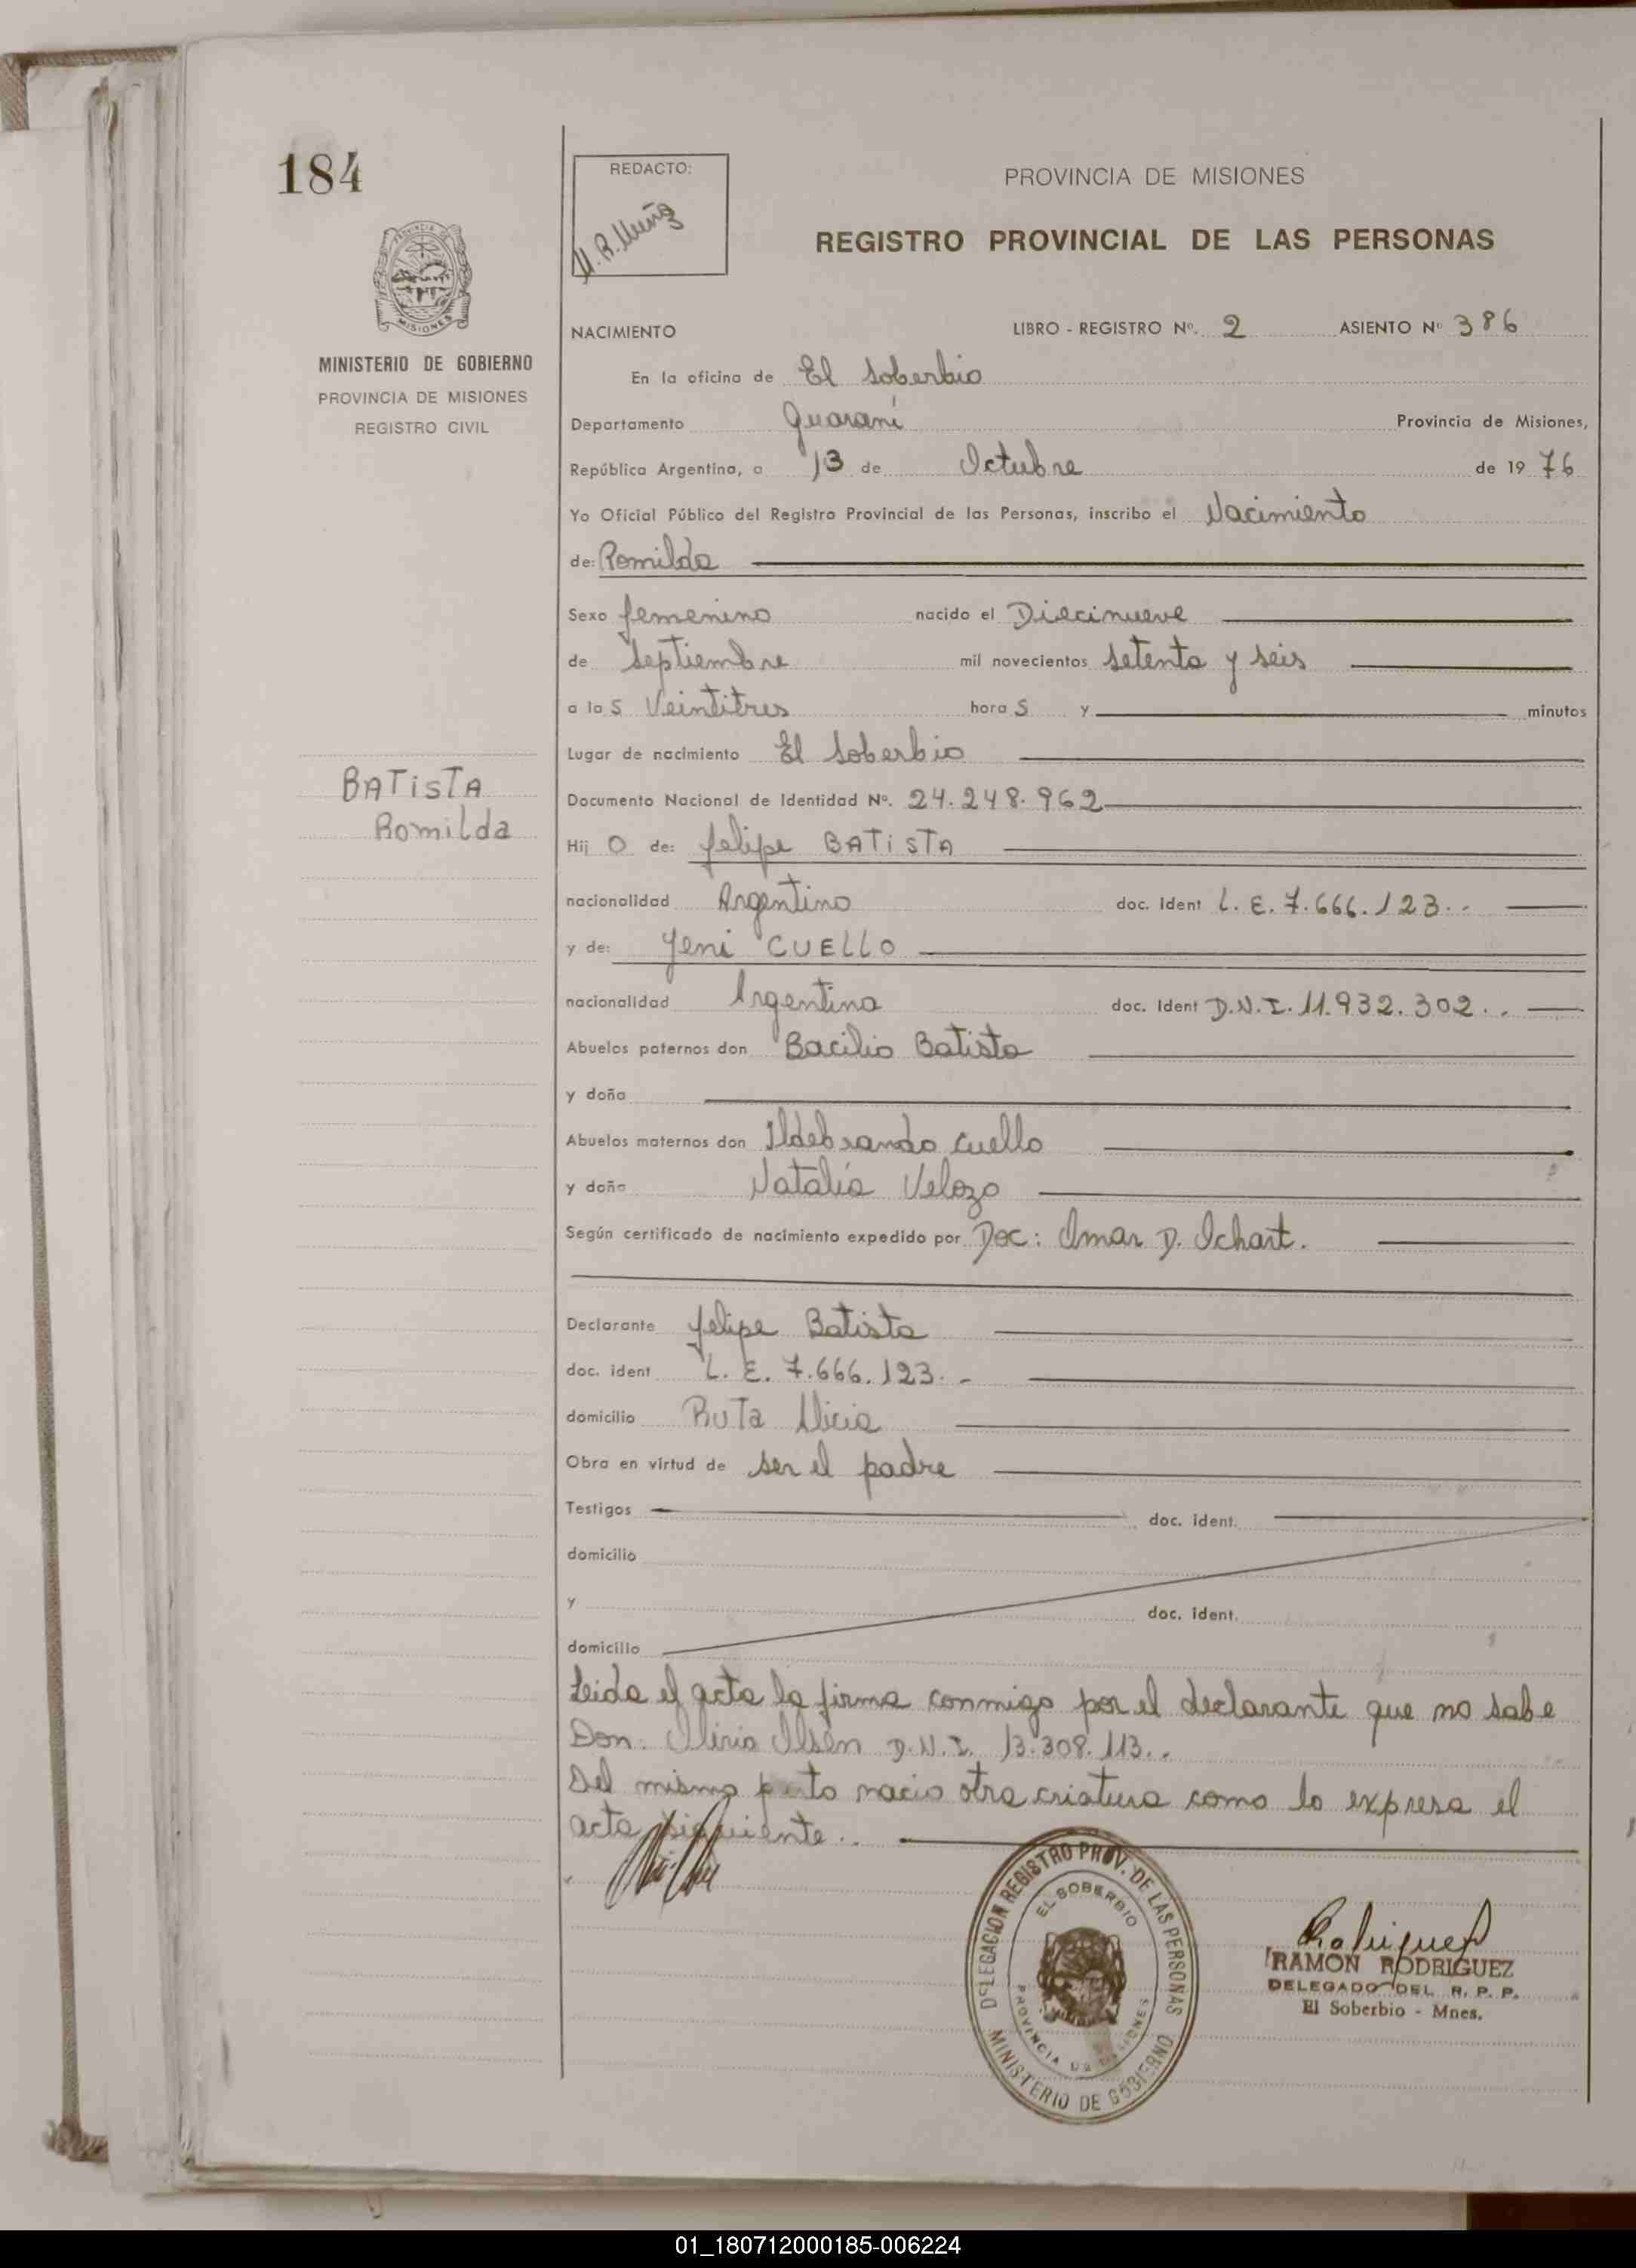 184
REDACTO:
PROVINCIA DE MISIONES
REGISTRO PROVINCIAL DE LAS PERSONAS
PROVINCIA DE MISIONES
MINISTERIO DE GOBIERNO
PROVINCIA DE MISIONES
REGISTRO CIVIL
NACIMIENTO LIBRO - REGISTRO Nº. 2 ASIENTO Nº 386
En la oficina de El Soberbio
Departamento Guaraní Provincia de Misiones,
República Argentina, a 13 de Octubre de 19 76
Yo Oficial Público del Registro Provincial de las Personas, inscribo el Nacimiento
de: Romilda
Sexo femenino nacido el Diecinueve
de Septiembre mil novecientos setenta y seis
a la s Veintitres hora s y minutos
Lugar de nacimiento El Soberbio
BATISTA
Romilda
Documento Nacional de Identidad Nº. 24.248.962
Hij o de: Felipe BATISTA
nacionalidad Argentino doc. Ident L.E. 7.666.123..
y de: Yeni CUELLO
nacionalidad Argentina doc. Ident D.N.I. 11.932.302..
Abuelos paternos don Bacilio Batista
y doña
Abuelos maternos don Ildebrando Cuello
y doña Natalia Velozo
Según certificado de nacimiento expedido por Doc: Omar D. Ochart.
Declarante Felipe Batista
doc. ident L.E. 7.666.123.-
domicilio Ruta Alicia
Obra en virtud de ser el padre
Testigos doc. ident.
domicilio
y doc. ident.
domicilio
Leida el acta la firma conmigo por el declarante que no sabe
Don: D.N.I. 13.308.113..
Del mismo parto nacio otra criatura como lo expresa el
acta siguiente..
DELEGACION REGISTRO PROV. DE LAS PERSONAS
EL SOBERBIO
PROVINCIA DE MISIONES
MINISTERIO DE GOBIERNO
Rodriguez
RAMON RODRIGUEZ
DELEGADO DEL R. P. P.
El Soberbio - Mnes.
01_180712000185-006224